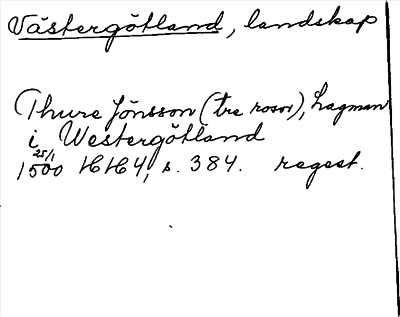 Västergötland, landskap
Thure Jönsson (tre rosor), Lagman
i Westergötland
25/1
1500 HH 4, s. 384. regest.